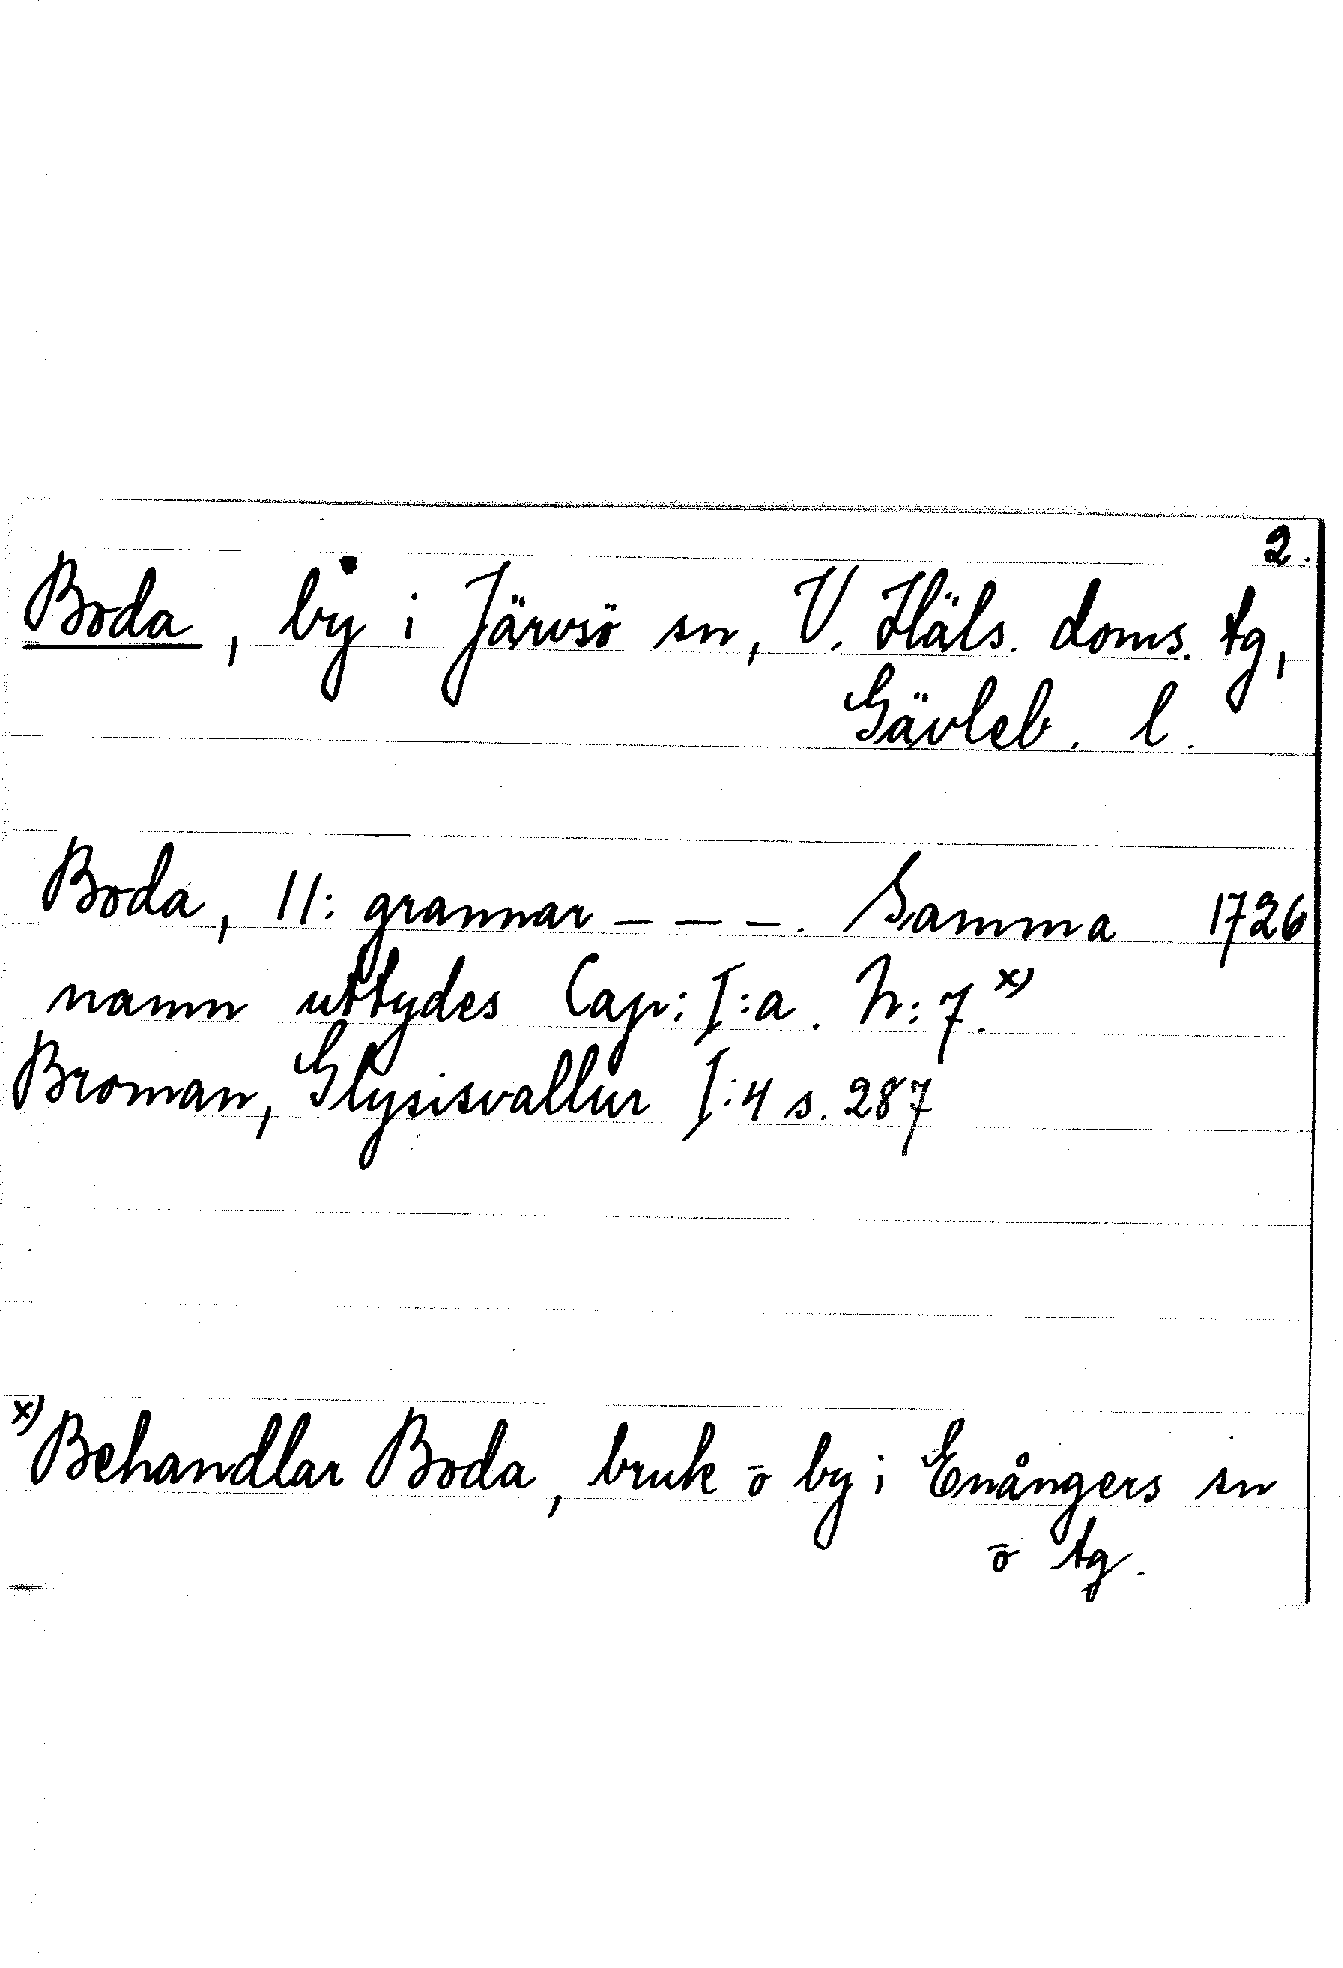 2.
Boda, by i Järvsö sn, V. Häls. doms. tg,
Gävleb. l.
Boda, 11: grannar - - -. Samma 1726
namn uttydes Cap: I:a. N: 7.x)
Broman, Glysisvallur I:4 s. 287
x) Behandlar Boda, bruk o by i Enångers sn
o tg.